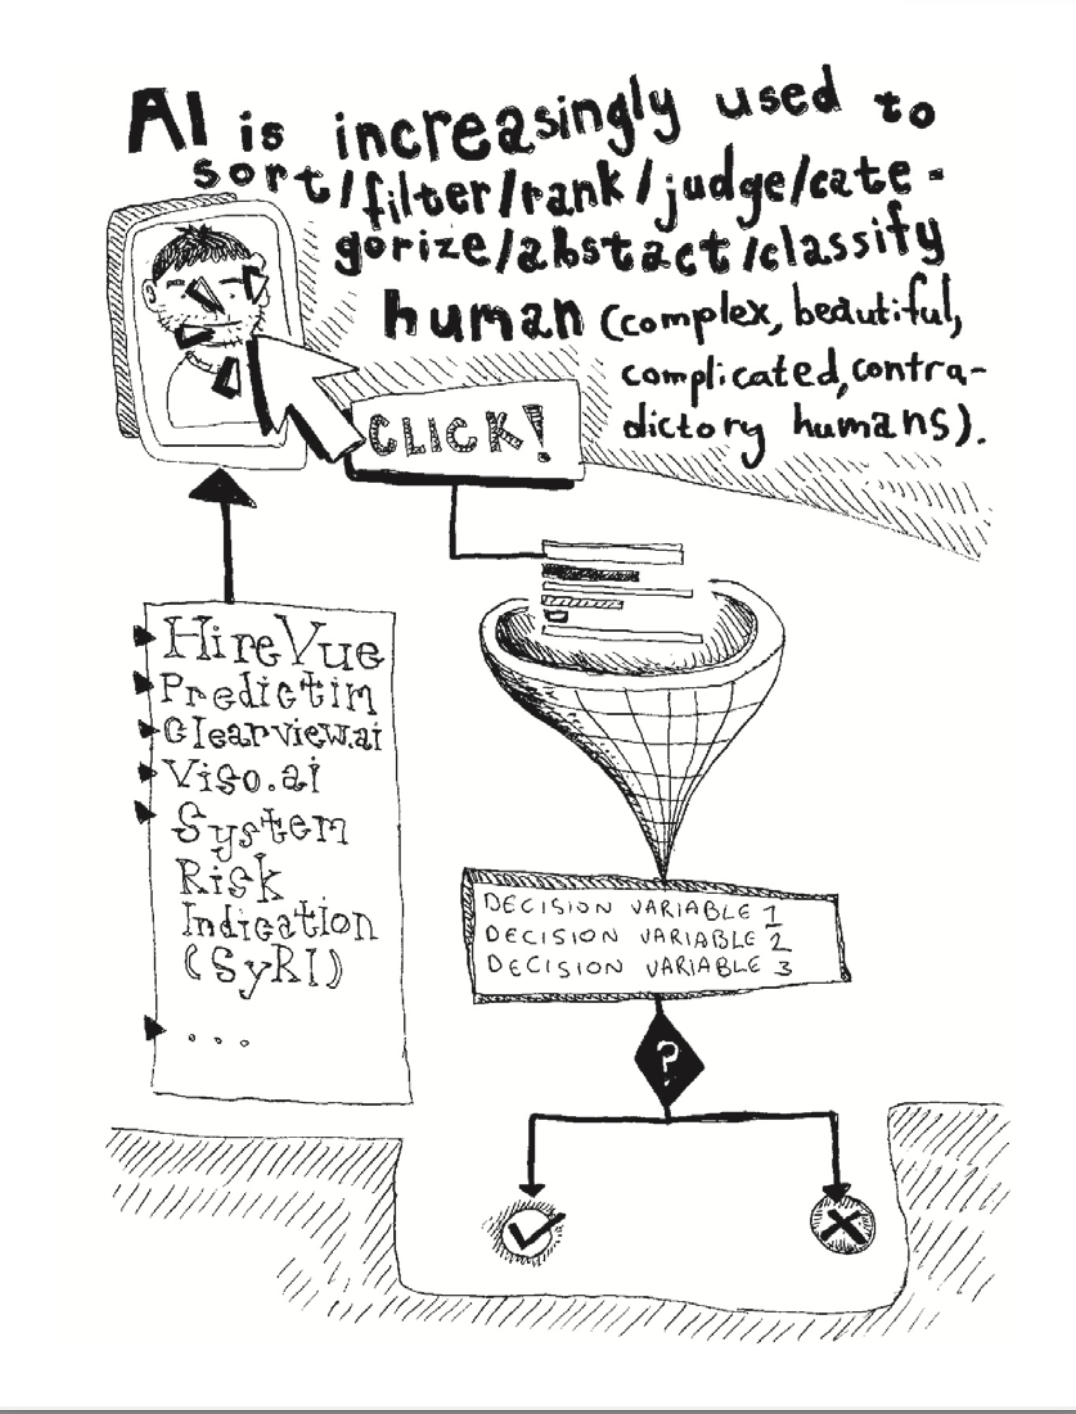 AI is increasingly used to
sort/filter/rank/judge/cate-
gorize/abstact/classify
human (complex, beautiful,
complicated, contra-
dictory humans).
CLICK!
HireVue
Predictim
Clearview.ai
Viso.ai
System
Risk
Indication
(SyRI)
...
DECISION VARIABLE 1
DECISION VARIABLE 2
DECISION VARIABLE 3
?